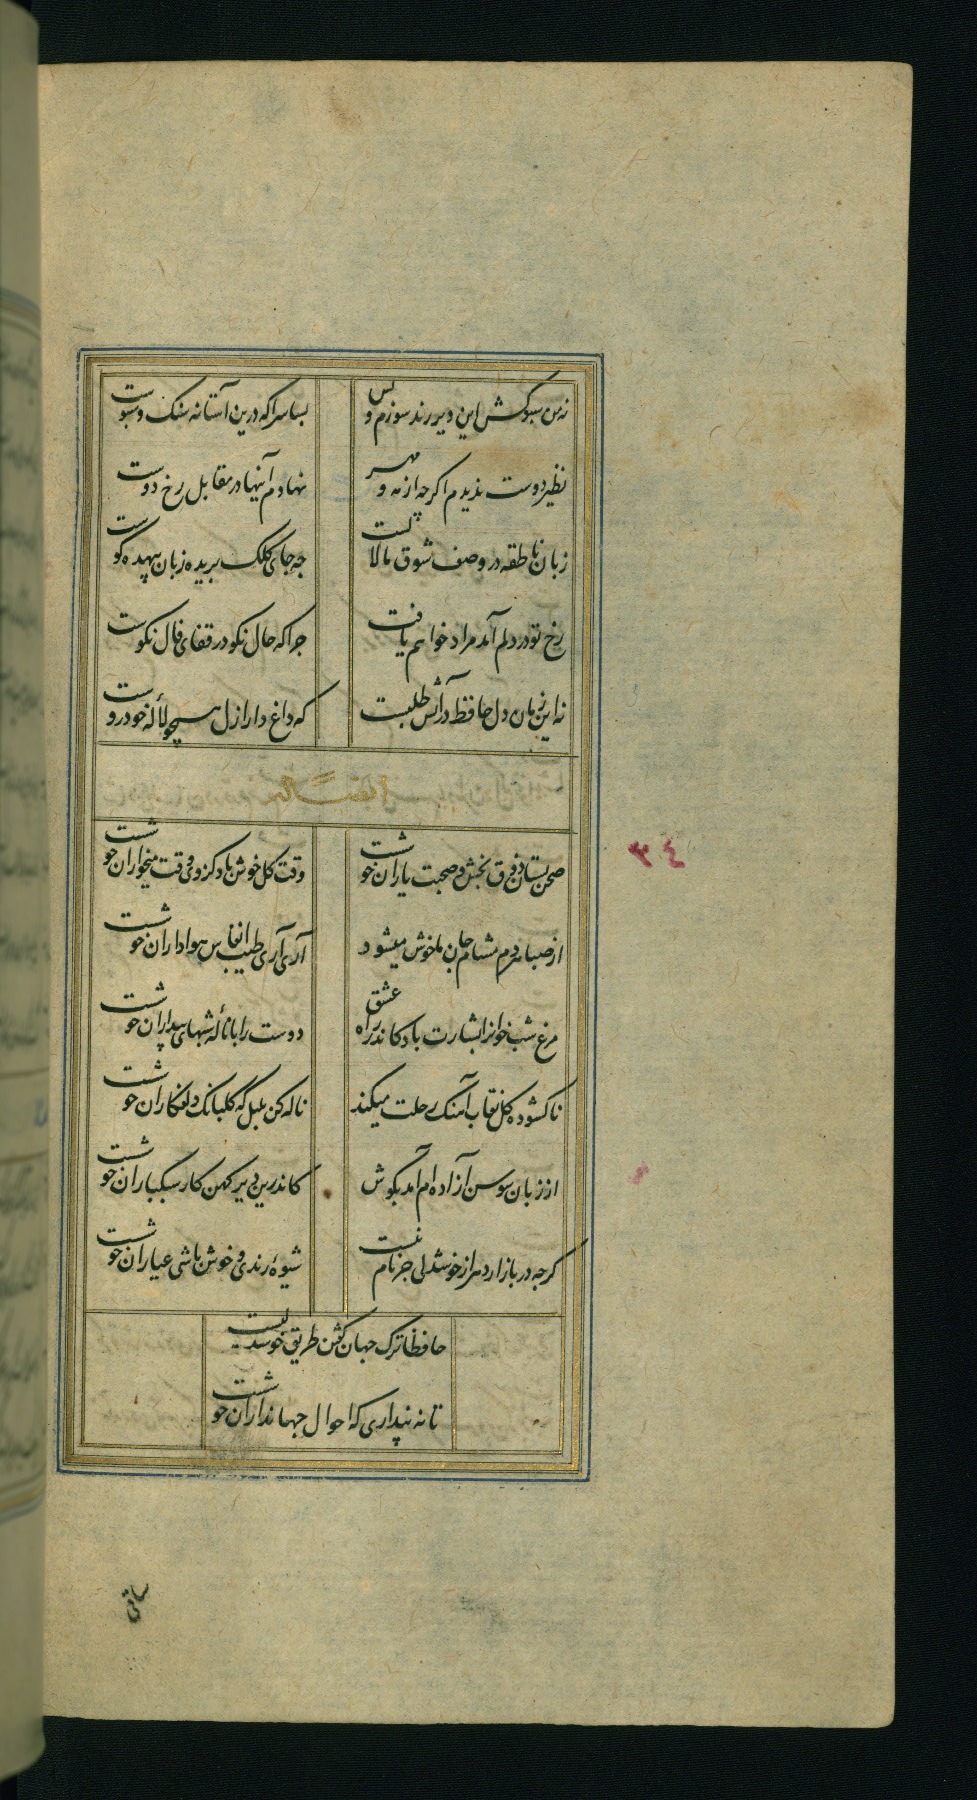 نه من سبوکش این دیر رند سوزم و بس بسا سرا که درین آستانه سنک و سبوست
نظیر دوست ندیدم اکرچه از مه و مهر نهادم آینها در مقابل رخ دوست
زبان ناطقه در وصف شوق ما لالست چه جای کلک بریده زبان بیهده کوست
رخ تو در دلم آمد مراد خواهم یافت چرا که حال نکو در قفای فال نکوست
نه این زمان دل حافظ در آتش طلبست که داغدار ازل همچو لاله خودروست
صحن بستان ذوق بخش و صحبت یاران خوشست وقت کل خوش باد کز وی وقت میخواران خوشست
از صبا هردم مشام جان ما خوش میشود آری آری طیب انفاس هواداران خوشست
مرغ شب خوانرا بشارت باد کاندر راه عشق دوست را با ناله شبهای بیداران خوشست
ناکشوده کل نقاب آهنک رحلت میکند ناله کن بلبل که کلبانک دلفکاران خوشست
از زبان سوسن آزاده ام آمد بکوش کاندرین دیر کهن کار سبکباران خوشست
کرچه در بازار دهر از خوشدلی جز نام نیست شیوهٔ رندی و خوش باشی عیاران خوشست
حافظا ترک جهان کفتن طریق خوشدلیست
تا نه پنداری که احوال جهانداران خوشست
٣٤
ساقی